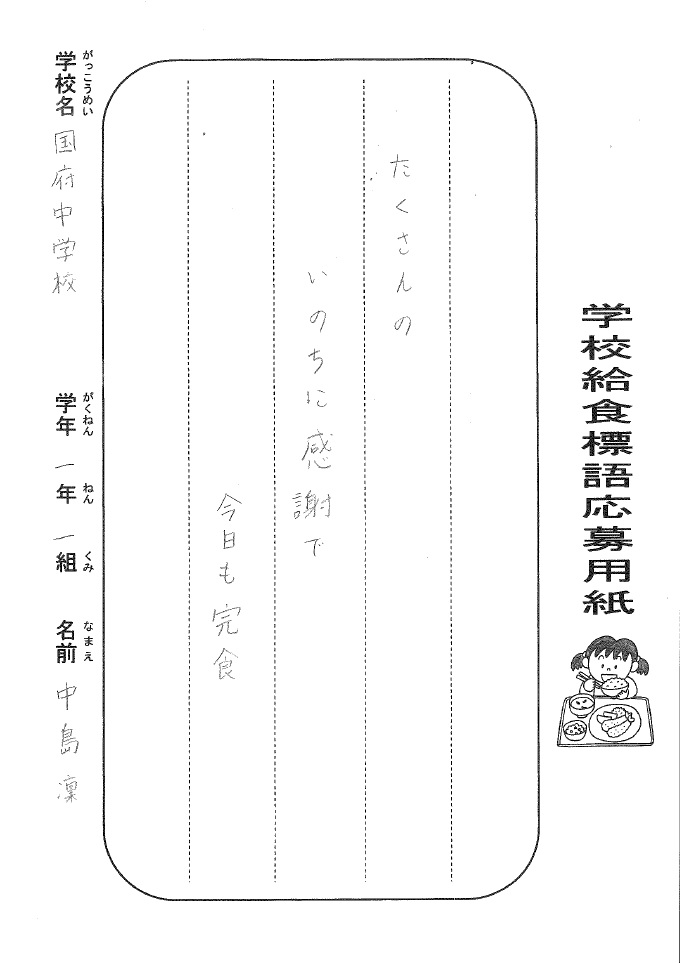 学校給食標語応募用紙
たくさんの
いのちに感謝で
今日も完食
がっこうめい
学校名 国府中学校
がくねん ねん くみ
学年 一年 一組
なまえ
名前 中島凜